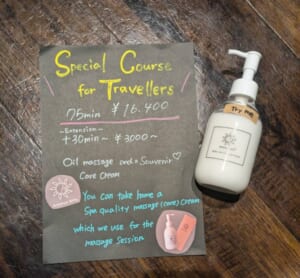 Special Course
for Travellers
75min ¥16,400
~Extension~
+30min~ ¥3000~
Oil massage and a Souvenir♡
Care Cream
You can take home a
Spa quality massage (care) Cream
which we use for the
massage Session.
Try me